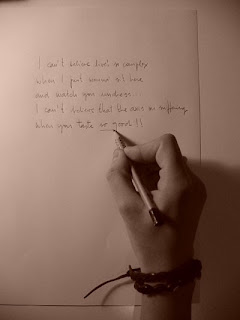 I can't believe life's so complex
when I just wanna sit here
and watch you undress...
I can't believe that the on suffering
when you taste so good!!